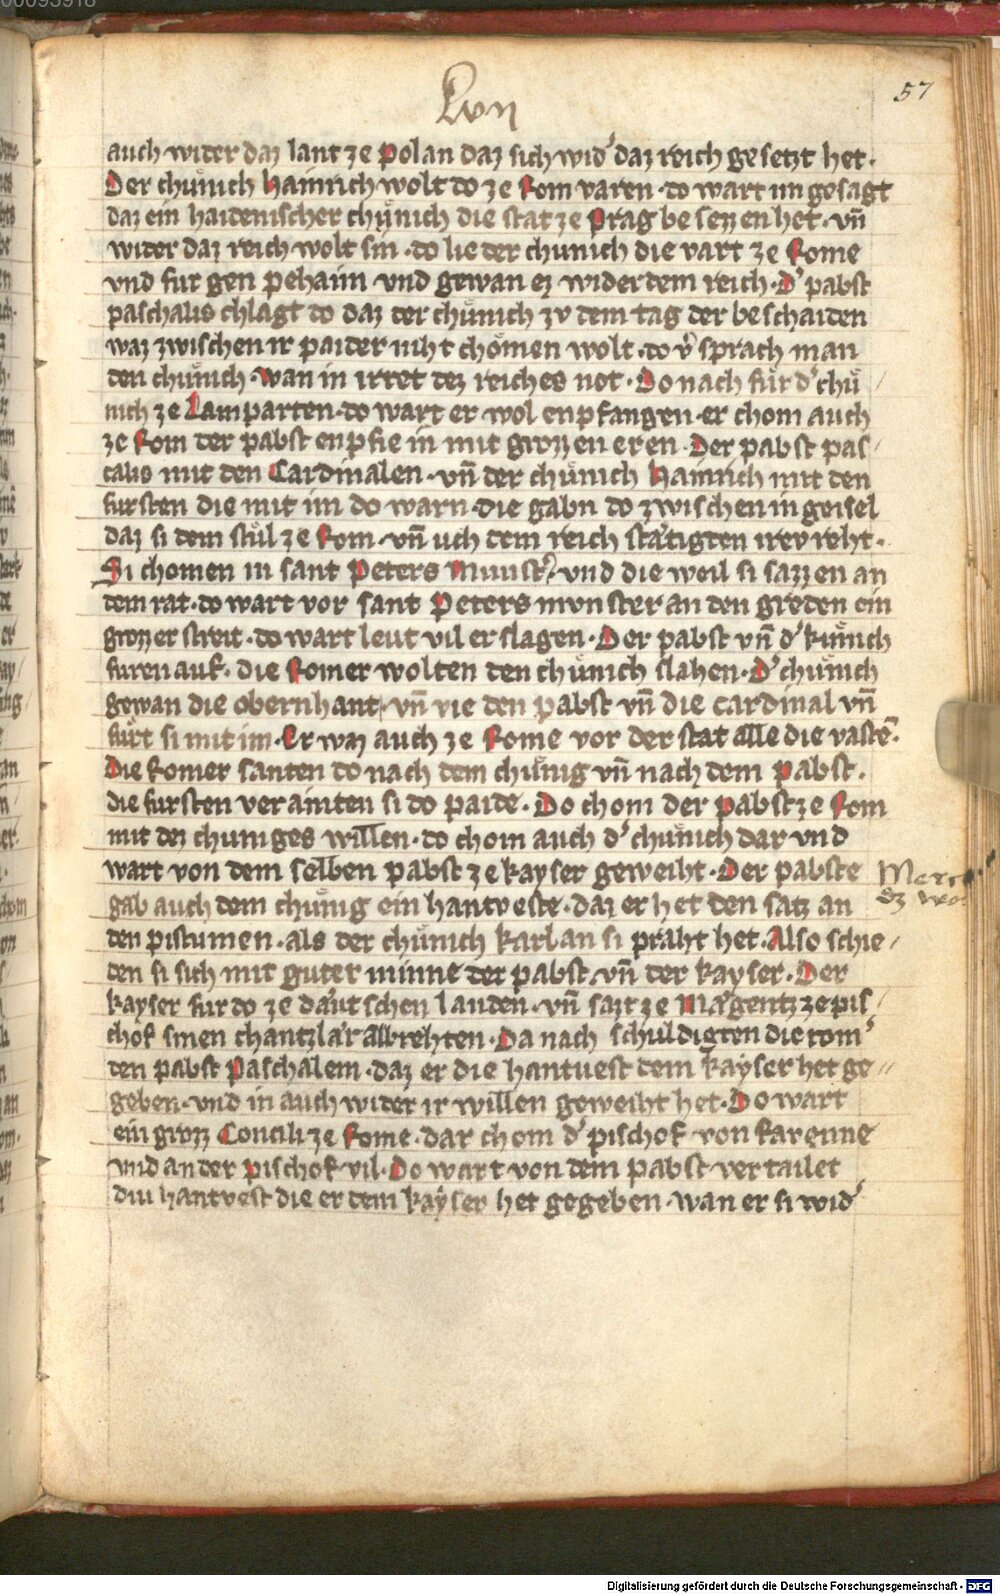 00093918
57
Lvn
auch wider daz lant ze Polan daz sich wid' daz reich gesetzt het ·
Der chu̍nich Hainrich wolt do ze Rom varen · do wart im gesagt
daz ein haidenischer chu̍nich die stat ze Prag besezzen het · vn̄
wider daz reich wolt sin · do lie der chunich die vart ze Rome
vnd fur gen Pehaim vnd gewan ez wider dem reich · D' pabst
paschalis chlagt do daz der chu̍nich zv dem tag der beschaiden
waz zwischen ir paider niht chomen wolt · do v' sprach man
den chu̍nich · wan in irret dez reiches not · Do nach fu̍r d' chu̍
nich ze Lamparten · do wart er wol enpfangen · er chom auch
ze Rom der pabst enpfie in mit grozzen eren · Der pabst pas/
calis mit den Cardinalen · vn̄ der chu̍nich Hainrich mit den
fursten die mit im do warn · die gabn do zwischen in geisel
daz si dem stu̍l ze Rom · vn̄ uch dem reich sta̍tigten irev reht ·
Si chomen in sant Peters Munst' · vnd die weil si sazzen an
dem rat · do wart vor sant Peters mvnster an den greden ein
grozzer streit · do wart leut vil erslagen · Der pabst vn̄ d' ku̍nich
furen auf · die Romer wolten den chu̍nich slahen · D' chu̍nich
gewan die obernhant · vn̄ vie den pabst vn̄ die cardinal vn̄
fu̍rt si mit im · Er waz auch ze Rome vor der stat alle die vastē ·
Die Romer santen do nach dem chu̍nig vn̄ nach dem pabst ·
die fursten verainten si do paide · Do chom der pabst ze Rom
mit dez chuniges willen · do chom auch d' chu̍nich dar vnd
wart von dem selben pabst ze kayser geweiht · Der pabste
gab auch dem chu̍nig ein hantveste · daz er het den satz an
den pistumen · als der chu̍nich karl an si praht het · Also schie/
den si sich mit guter minne der pabst · vn̄ der kayser · Der
kayser fur do ze da̍utschen landen · vn̄ sazt ze Ma̍gentz ze pis/
chof sinen chantzla̍r albrehten · Da nach schuldigten die rom'
den pabst Paschalem · daz er die hantuest dem kayser het ge//
geben · vnd in auch wider ir willen geweiht het · Do wart
ein grozz Concili ze Rome · dar chom d' pischof von karenne
vnd ander pischof vil · Do wart von dem pabst vertailet
diu hantvest die er dem kayser het gegeben · wan er si wid'
Digitalisierung gefördert durch die Deutsche Forschungsgemeinschaft - DFG